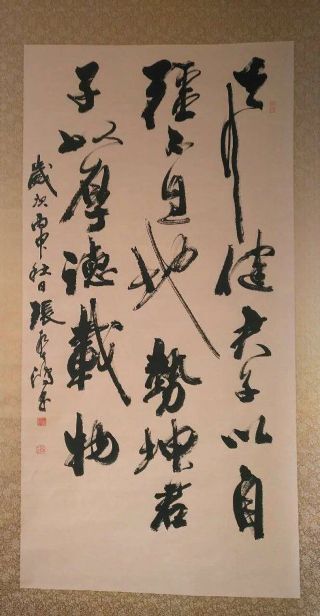 天行健君子以自
彊不息地勢坤君
子以厚德載物
歲次丙申秋日張